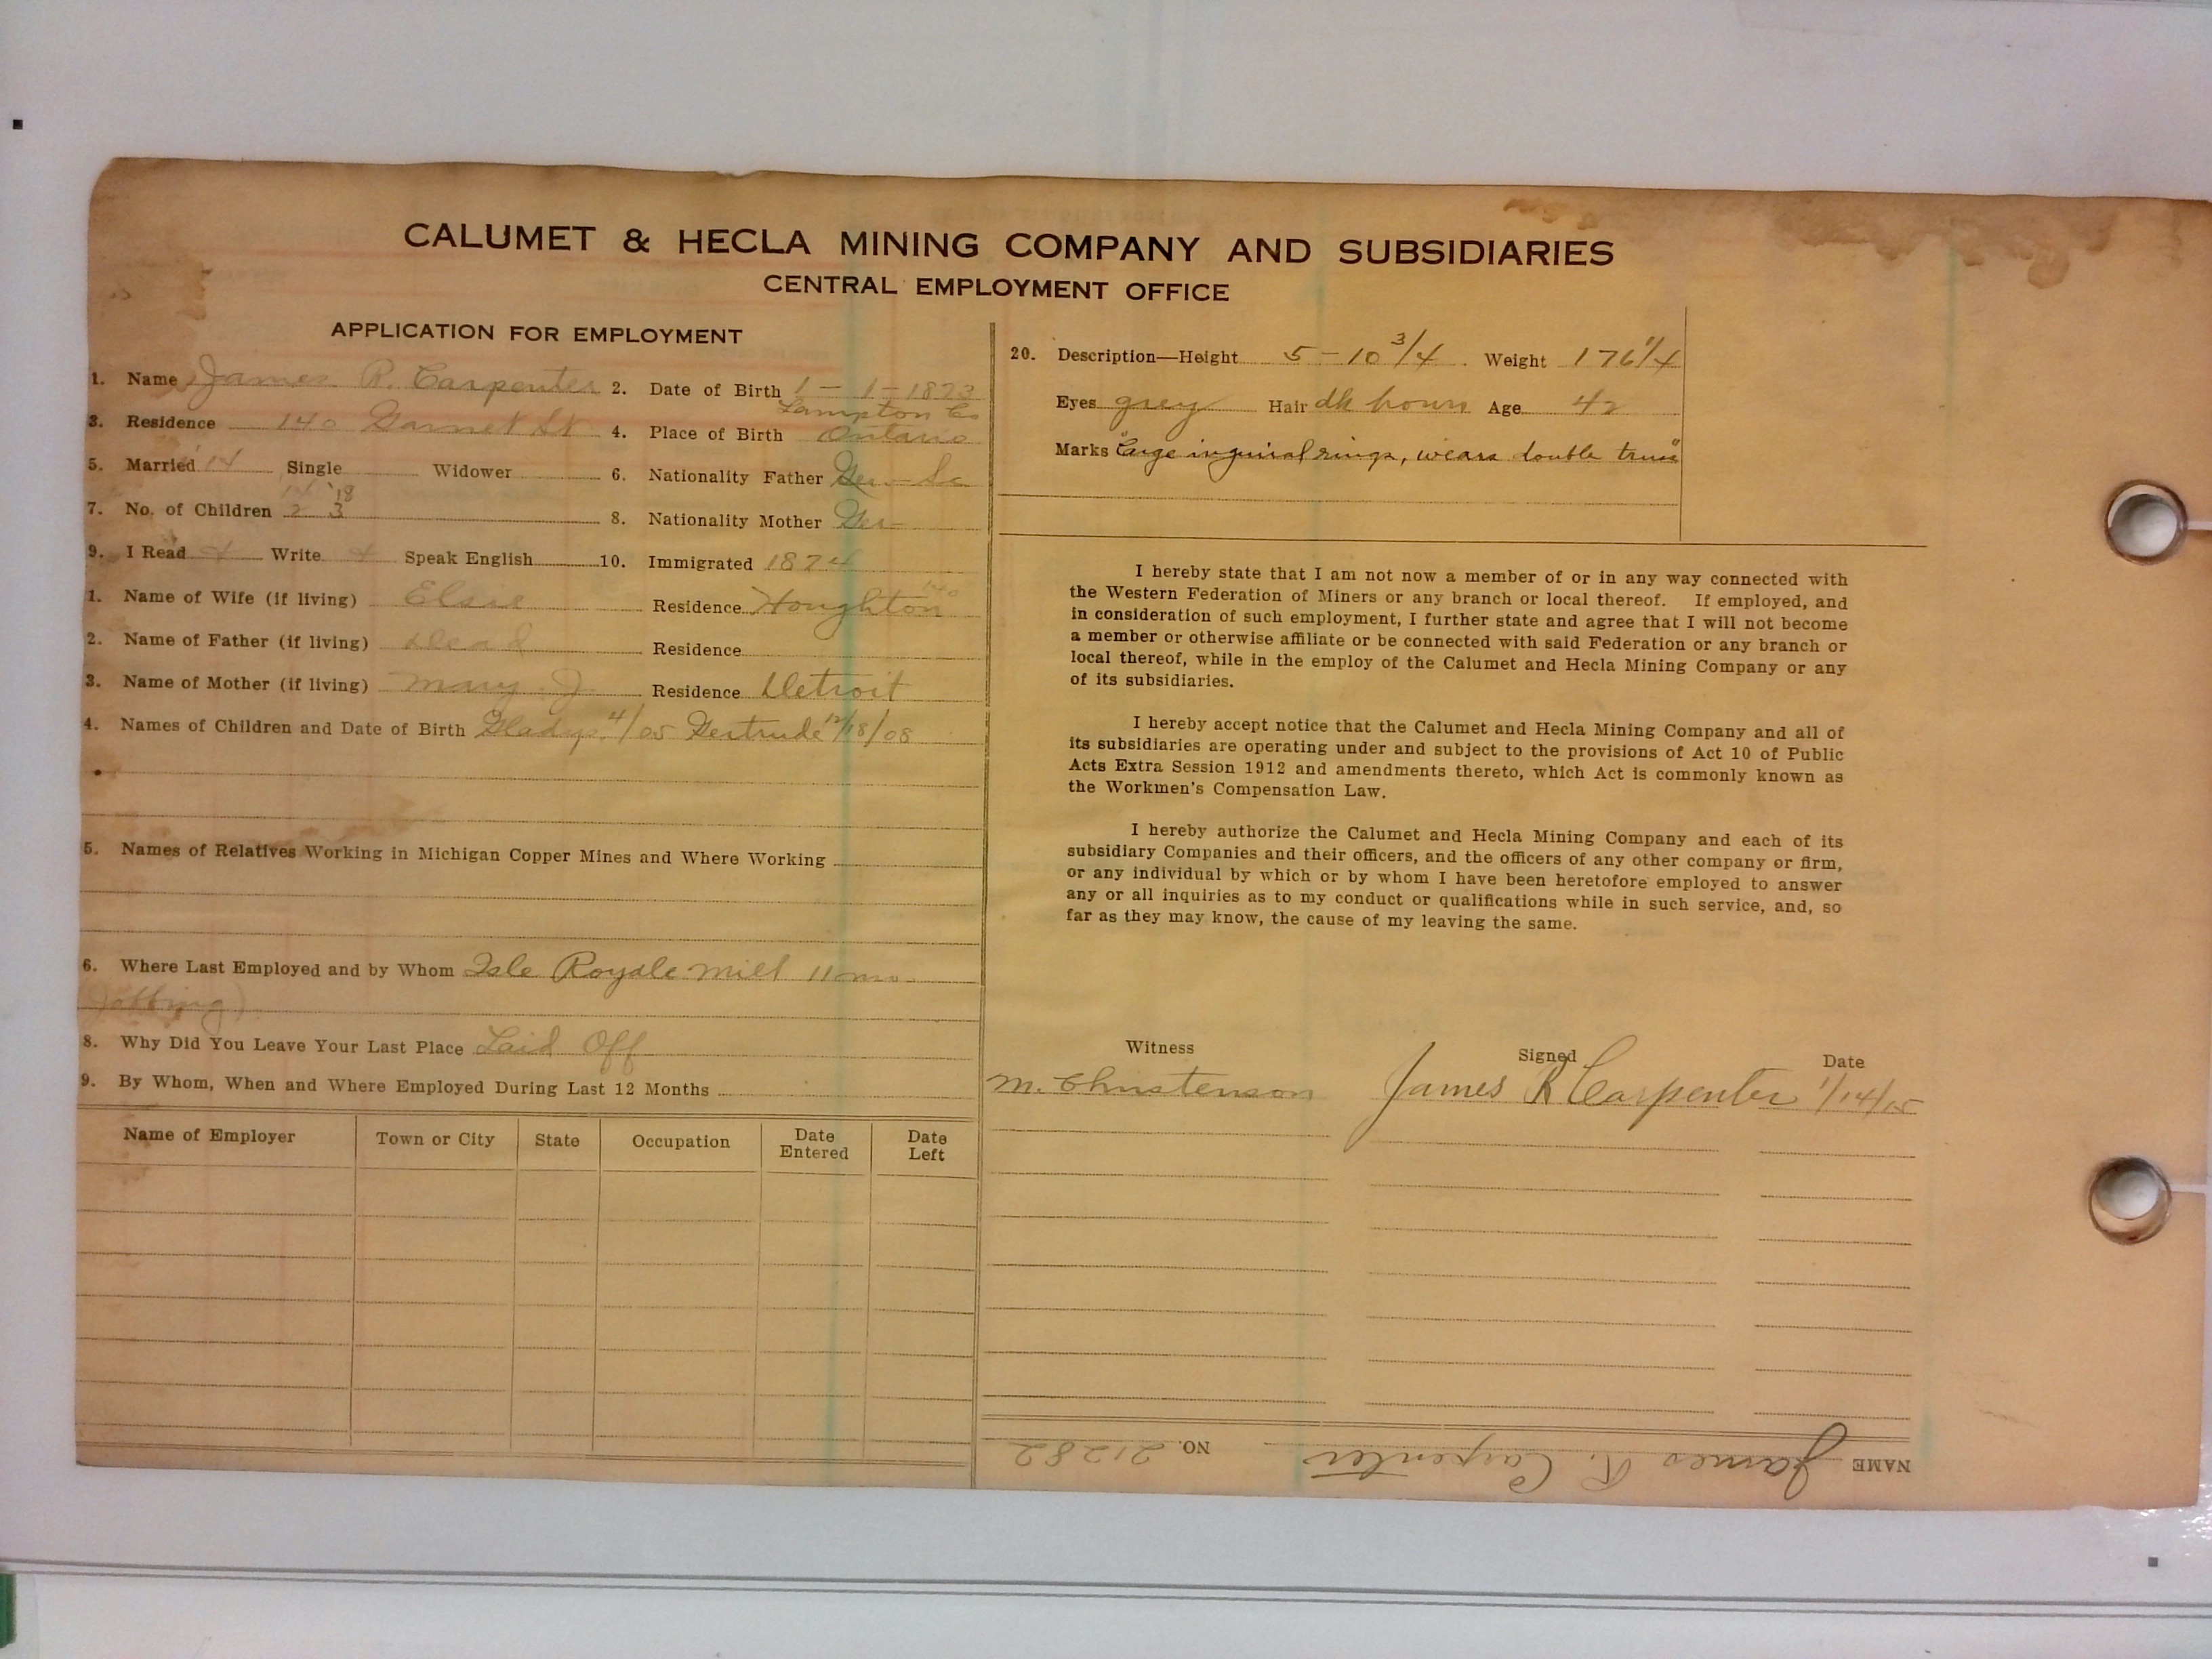 CALUMET & HECLA MINING COMPANY AND SUBSIDIARIES
CENTRAL EMPLOYMENT OFFICE
APPLICATION FOR EMPLOYMENT
1. Name James R. Carpenter 2. Date of Birth 1-1-1873
3. Residence 140 Garnet St 4. Place of Birth Lampton Co Ontario
5. Married 14 Single Widower 6. Nationality Father Ger-Sc
7. No. of Children 14 2 '18 3 8. Nationality Mother Ger-
9. I Read + Write + Speak English 10. Immigrated 1874
1. Name of Wife (if living) Elsie Residence Houghton
2. Name of Father (if living) Dead Residence
3. Name of Mother (if living) Mary J. Residence Detroit
4. Names of Children and Date of Birth Gladys 4/05 Gertrude 12/18/08
5. Names of Relatives Working in Michigan Copper Mines and Where Working
6. Where Last Employed and by Whom Isle Royale Mill 11 mo.
(Jobbing)
8. Why Did You Leave Your Last Place Laid Off
9. By Whom, When and Where Employed During Last 12 Months
Name of Employer Town or City State Occupation Date Entered Date Left
20. Description—Height 5-10 3/4 Weight 176 1/4
Eyes grey Hair dk brown Age 42
Marks "Large inguinal rings, wears double truss"
I hereby state that I am not now a member of or in any way connected with
the Western Federation of Miners or any branch or local thereof. If employed, and
in consideration of such employment, I further state and agree that I will not become
a member or otherwise affiliate or be connected with said Federation or any branch or
local thereof, while in the employ of the Calumet and Hecla Mining Company or any
of its subsidiaries.
I hereby accept notice that the Calumet and Hecla Mining Company and all of
its subsidiaries are operating under and subject to the provisions of Act 10 of Public
Acts Extra Session 1912 and amendments thereto, which Act is commonly known as
the Workmen's Compensation Law.
I hereby authorize the Calumet and Hecla Mining Company and each of its
subsidiary Companies and their officers, and the officers of any other company or firm,
or any individual by which or by whom I have been heretofore employed to answer
any or all inquiries as to my conduct or qualifications while in such service, and, so
far as they may know, the cause of my leaving the same.
Witness Signed Date
M. Christenson James R Carpenter 1/14/15
NAME James R. Carpenter NO. 21282